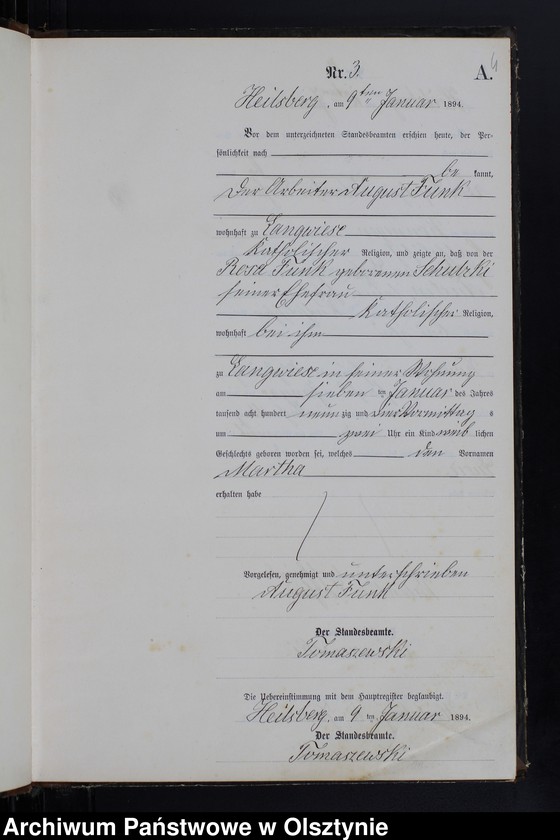 4
Nr. 3. A.
Heilsberg, am 9ten Januar 1894.
Vor dem unterzeichneten Standesbeamten erschien heute, der Per-
sönlichkeit nach
be kannt,
der Arbeiter August Funk
wohnhaft zu Langwiese
katholischer Religion, und zeigte an, daß von der
Rosa Funk geborenen Schulzki
seiner Ehefrau
katholischer Religion,
wohnhaft bei ihm
zu Langwiese in seiner Wohnung
am sieben ten Januar des Jahres
tausend acht hundert neun zig und vier Vormittag s
um zwei Uhr ein Kind weib lichen
Geschlechts geboren worden sei, welches den Vornamen
Martha
erhalten habe
Vorgelesen, genehmigt und unterschrieben
August Funk
Der Standesbeamte.
Tomaszewski
Die Uebereinstimmung mit dem Hauptregister beglaubigt.
Heilsberg, am 9 ten Januar 1894.
Der Standesbeamte.
Tomaszewski
Archiwum Państwowe w Olsztynie